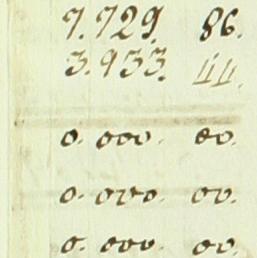 7.729. 86.
3.933. 44.
0.000. 00.
0.000. 00.
0.000. 00.